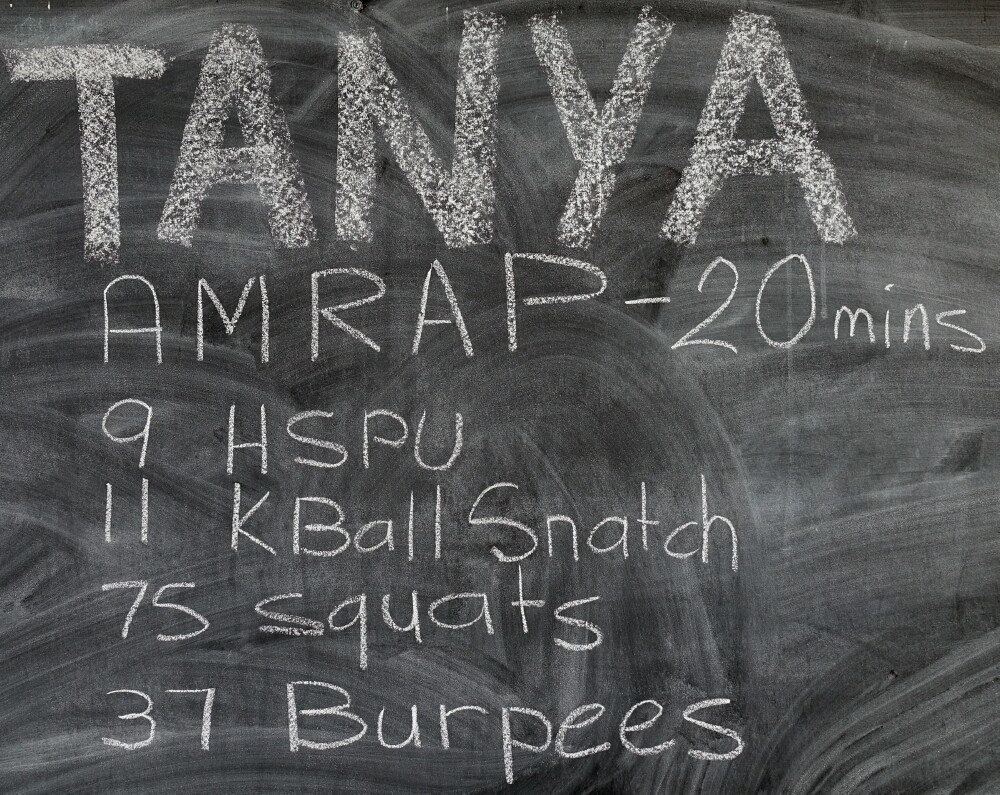 TANYA
AMRAP - 20 mins
9 HSPU
11 KBall Snatch
75 squats
37 Burpees